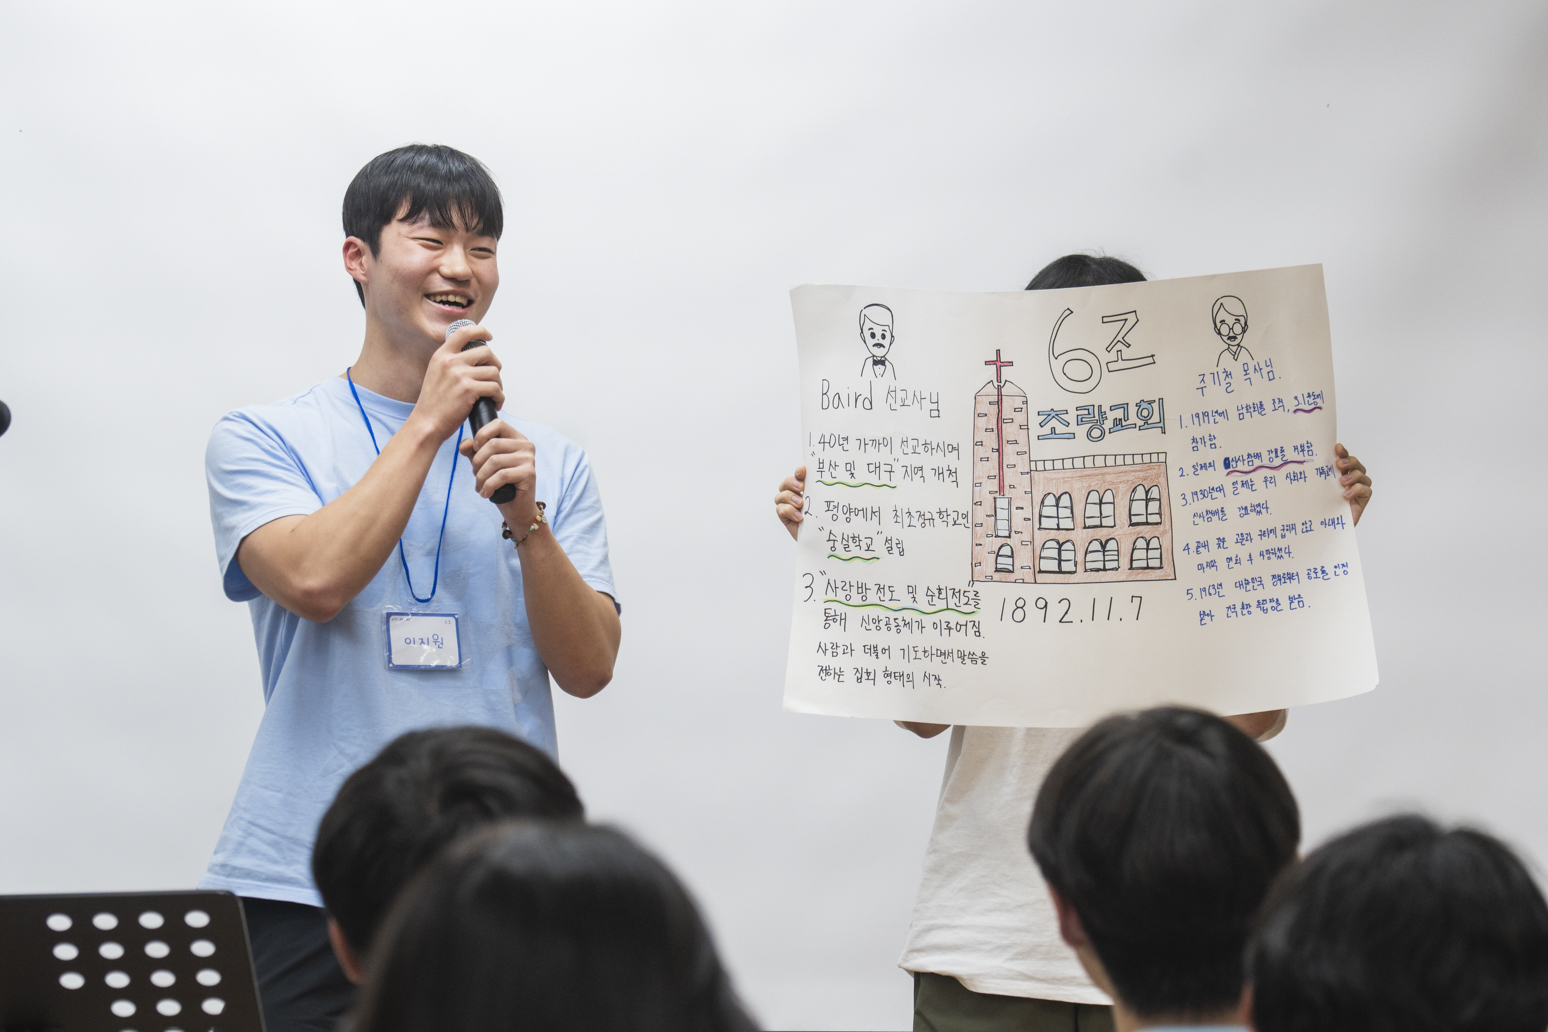 이지원
6조
초량교회
1892.11.7
Baird 선교사님
1. 40년 가까이 선교하시며
"부산 및 대구" 지역 개척
2. 평양에서 최초정규학교인
"숭실학교" 설립
3. "사랑방전도 및 순회전도"를
통해 신앙공동체가 이루어짐.
사람과 더불어 기도하면서 말씀을
전하는 집회 형태의 시작.
주기철 목사님.
1. 1919년에 남학회를 조직, 3.1운동에
참가함.
2. 일제의 신사참배 강요를 거부함.
3. 1930년대 일제는 우리 사회와 기독교에
신사참배를 강요하였다.
4. 끝내 모진 고문과 구타에 굽히지 않고 아내와
마지막 면회 후 사망하였다.
5. 1963년 대한민국 정부로부터 공로를 인정
받아 건국훈장 독립장을 받음.